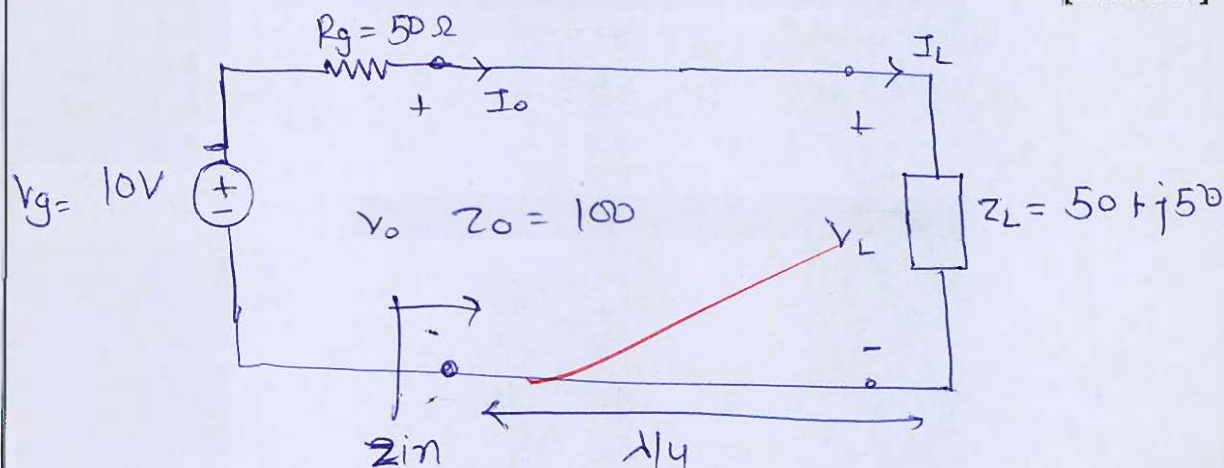 Rg = 50Ω
I₀
I_L
+
+
Vg = 10V
+
-
V₀
Z₀ = 100
V_L
Z_L = 50 + j50
-
-
Zin
λ/4